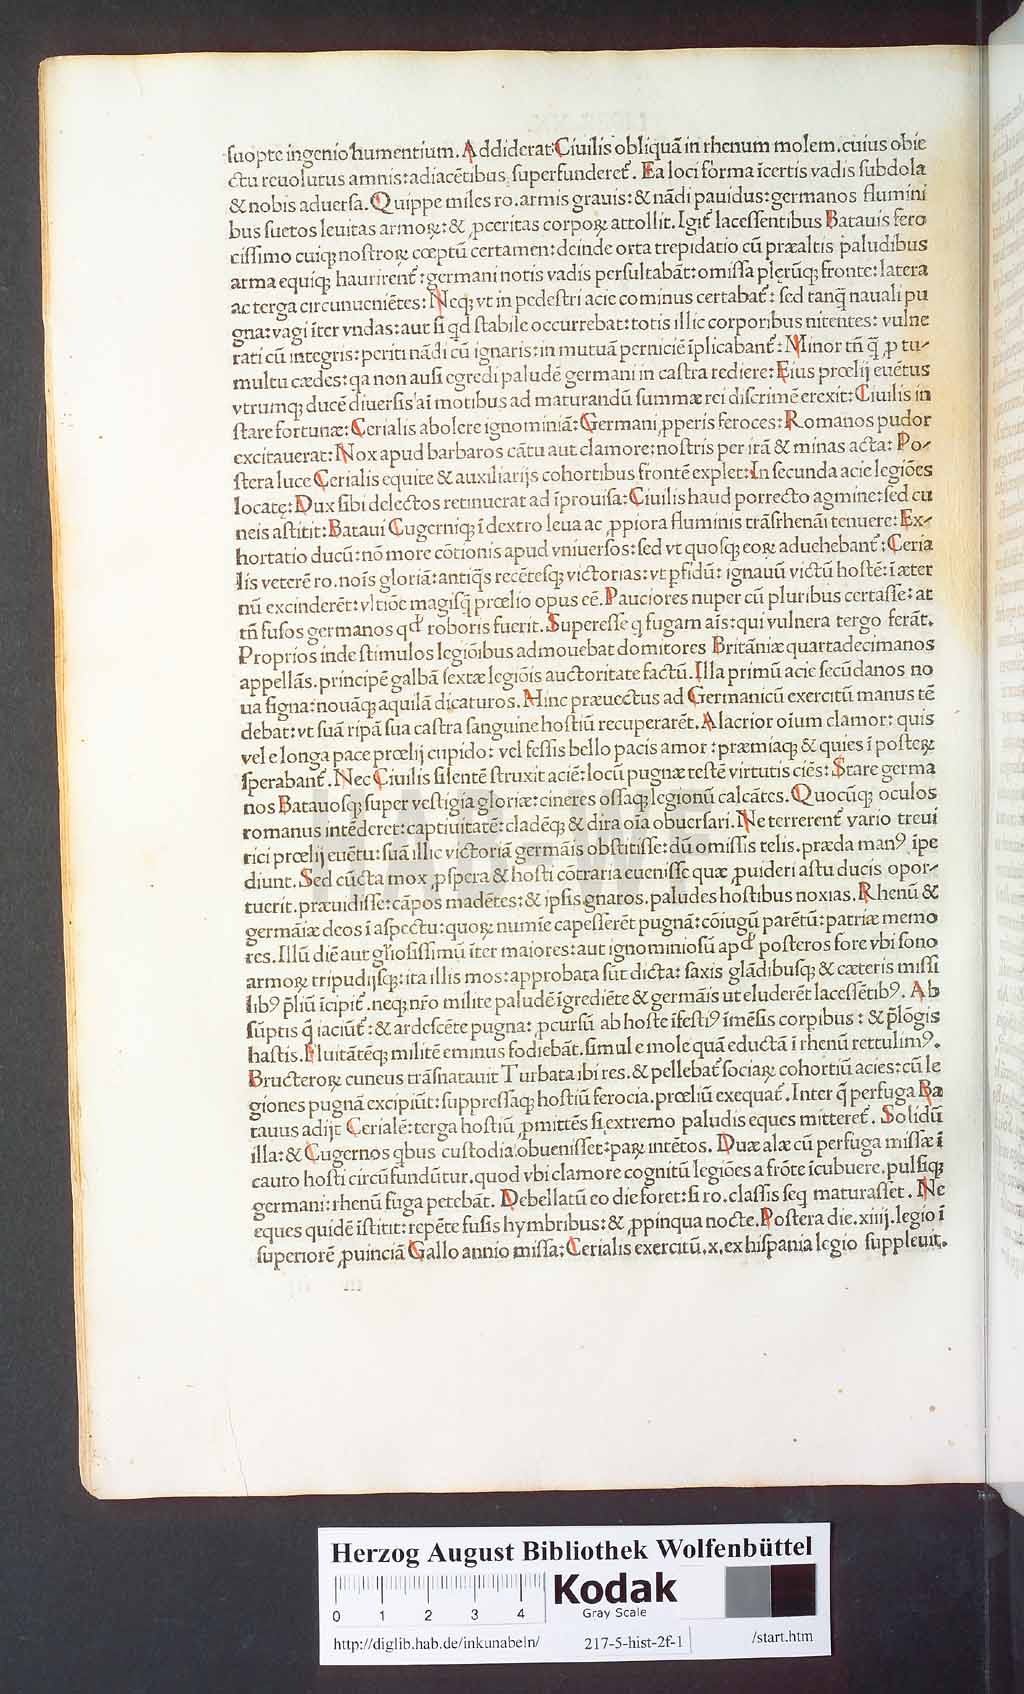 suopte ingenio humentium. Addiderat Ciuilis obliquā in rhenum molem. cuius obie
ctu reuolutus amnis: adiacētibus superfunderet᷑. Ea loci forma īcertis vadis subdola
& nobis aduersa. Quippe miles ro. armis grauis: & nādi pauidus: germanos flumini
bus suetos leuitas armoꝝ: & ꝓceritas corpoꝝ attollit. Igit᷑ lacessentibus Batauis fero
cissimo cuiqꝫ nostroꝝ cœptū certamen: deinde orta trepidatio cū præaltis paludibus
arma equiqꝫ haurirent᷑: germani notis vadis persultabāt: omissa plęrūqꝫ fronte: latera
ac terga circunueniētes: Neqꝫ vt in pedestri acie cominus certabat᷑: sed tanq̄ nauali pu
gna: vagi īter vndas: aut si qd stabile occurrebat: totis illic corporibus nitentes: vulne
rati cū integris: periti nādi cū ignaris: in mutuā perniciē īplicabant᷑: Minor tn̄ q̄ ꝓ tu-
multu cædes: qa non ausi egredi paludē germani in castra rediere: Eius prœlij euētus
vtrumqꝫ ducē diuersis ai motibus ad maturandū summæ rei discrimē erexit: Ciuilis in
stare fortunæ: Cerialis abolere ignominiā: Germani ꝓperis feroces: Romanos pudor
excitauerat: Nox apud barbaros cātu aut clamore: nostris per irā & minas acta: Po-
stera luce Cerialis equite & auxiliarijs cohortibus frontē explet: In secunda acie legiōes
locatę: Dux sibi delectos retinuerat ad īprouisa: Ciuilis haud porrecto agmine: sed cu
neis astitit: Bataui Cugerniqꝫ ī dextro leua ac ꝓpiora fluminis trāsrhenāi tenuere: Ex-
hortatio ducū: nō more cōtionis apud vniuersos: sed vt quosqꝫ eoꝝ aduehebant᷑: Ceria
lis veterē ro. nois gloriā: antiq̄s recētesqꝫ victorias: vt pfidū: ignauū victū hostē: ī æter
nū excinderēt: vltiōe magisq̄ prœlio opus eē. Pauciores nuper cū pluribus certasse: at
tn̄ fusos germanos qd roboris fuerit. Superesse q fugam ais: qui vulnera tergo ferāt.
Proprios inde stimulos legiōibus admouebat domitores Britāniæ quartadecimanos
appellās. principē galbā sextæ legiōis auctoritate factū. Illa primū acie secūdanos no
ua signa: nouāqꝫ aquilā dicaturos. Hinc præuectus ad Germanicū exercitū manus tē
debat: vt suā ripā sua castra sanguine hostiū recuperarēt. Alacrior oium clamor: quis
vel e longa pace prœlij cupido: vel fessis bello pacis amor: præmiaqꝫ & quies ī posteꝝ
sperabant᷑. Nec Ciuilis silentē struxit aciē: locū pugnæ testē virtutis ciēs: Stare germa
nos Batauosqꝫ super vestigia gloriæ: cineres ossaqꝫ legionū calcātes. Quocūqꝫ oculos
romanus intēderet: captiuitatē: cladēqꝫ & dira oīa obuersari. Ne terrerent᷑ vario treui
rici prœlij euētu: suā illic victoriā germāis obstitisse: dū omissis telis. præda manꝰ īpe
diunt. Sed cūcta mox ꝓspera & hosti cōtraria euenisse quæ ꝓuideri astu ducis opor-
tuerit. præuidisse: cāpos madētes: & ipsis gnaros. paludes hostibus noxias. Rhenū &
germāiæ deos ī aspectu: quoꝝ numīe capesserēt pugnā: cōiugū parētū: patriæ memo
res. Illū diē aut gl̄iosissimū īter maiores: aut ignominiosū apd posteros fore vbi sono
armoꝝ tripudijsqꝫ: ita illis mos: approbata sūt dicta: saxis glādibusqꝫ & cæteris missi
libꝰ p̄liū īcipit᷑. neqꝫ nr̄o milite paludē īgrediēte & germāis ut eluderēt lacessētibꝰ. Ab
sūptis q̄ iaciūt᷑: & ardescēte pugna: ꝓcursū ab hoste īfestiꝰ īmēsis corpibus: & p̄lōgis
hastis. Fluitātēqꝫ militē eminus fodiebāt. simul e mole quā eductā ī rhenū rettulimꝰ.
Bructeroꝝ cuneus trāsnatauit Turbata ibi res. & pellebat᷑ sociaꝝ cohortiū acies: cū le
giones pugnā excipiūt: suppressaqꝫ hostiū ferocia. prœliū exequat᷑. Inter q̄ perfuga Ba
tauus adijt Cerialē: terga hostiū ꝓmittēs si extremo paludis eques mitteret᷑. Solidū
illa: & Cugernos qbus custodia obuenisset: paꝝ intētos. Duæ alæ cū perfuga missæ ī
cauto hosti circūfundūtur. quod vbi clamore cognitū legiōes a frōte īcubuere. pulsiqꝫ
germani: rhenū fuga petebāt. Debellatū eo die foret: si ro. classis seq maturasset. Ne
eques quidē īstitit: repēte fusis hymbribus: & ꝓpinqua nocte. Postera die. xiiij. legio ī
superiorē ꝓuinciā Gallo annio missa: Cerialis exercitū. x. ex hispania legio suppleuit.
HAB-WF
Herzog August Bibliothek Wolfenbüttel
0 1 2 3 4
Kodak
Gray Scale
http://diglib.hab.de/inkunabeln/ 217-5-hist-2f-1 /start.htm